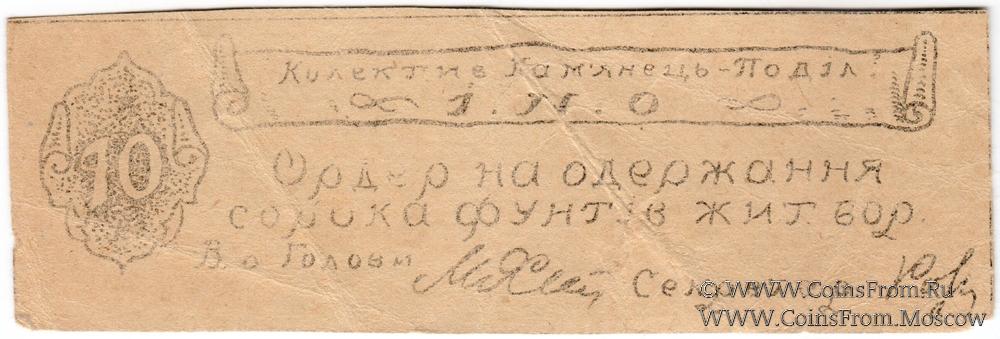 Колектив Кам'янець-Поділ.
І.Н.О
10
Ордер на одержання
сорока фунтів жит. бор.
В о Голови
Секретар
© WWW.CoinsFrom.Ru
WWW.CoinsFrom.Moscow